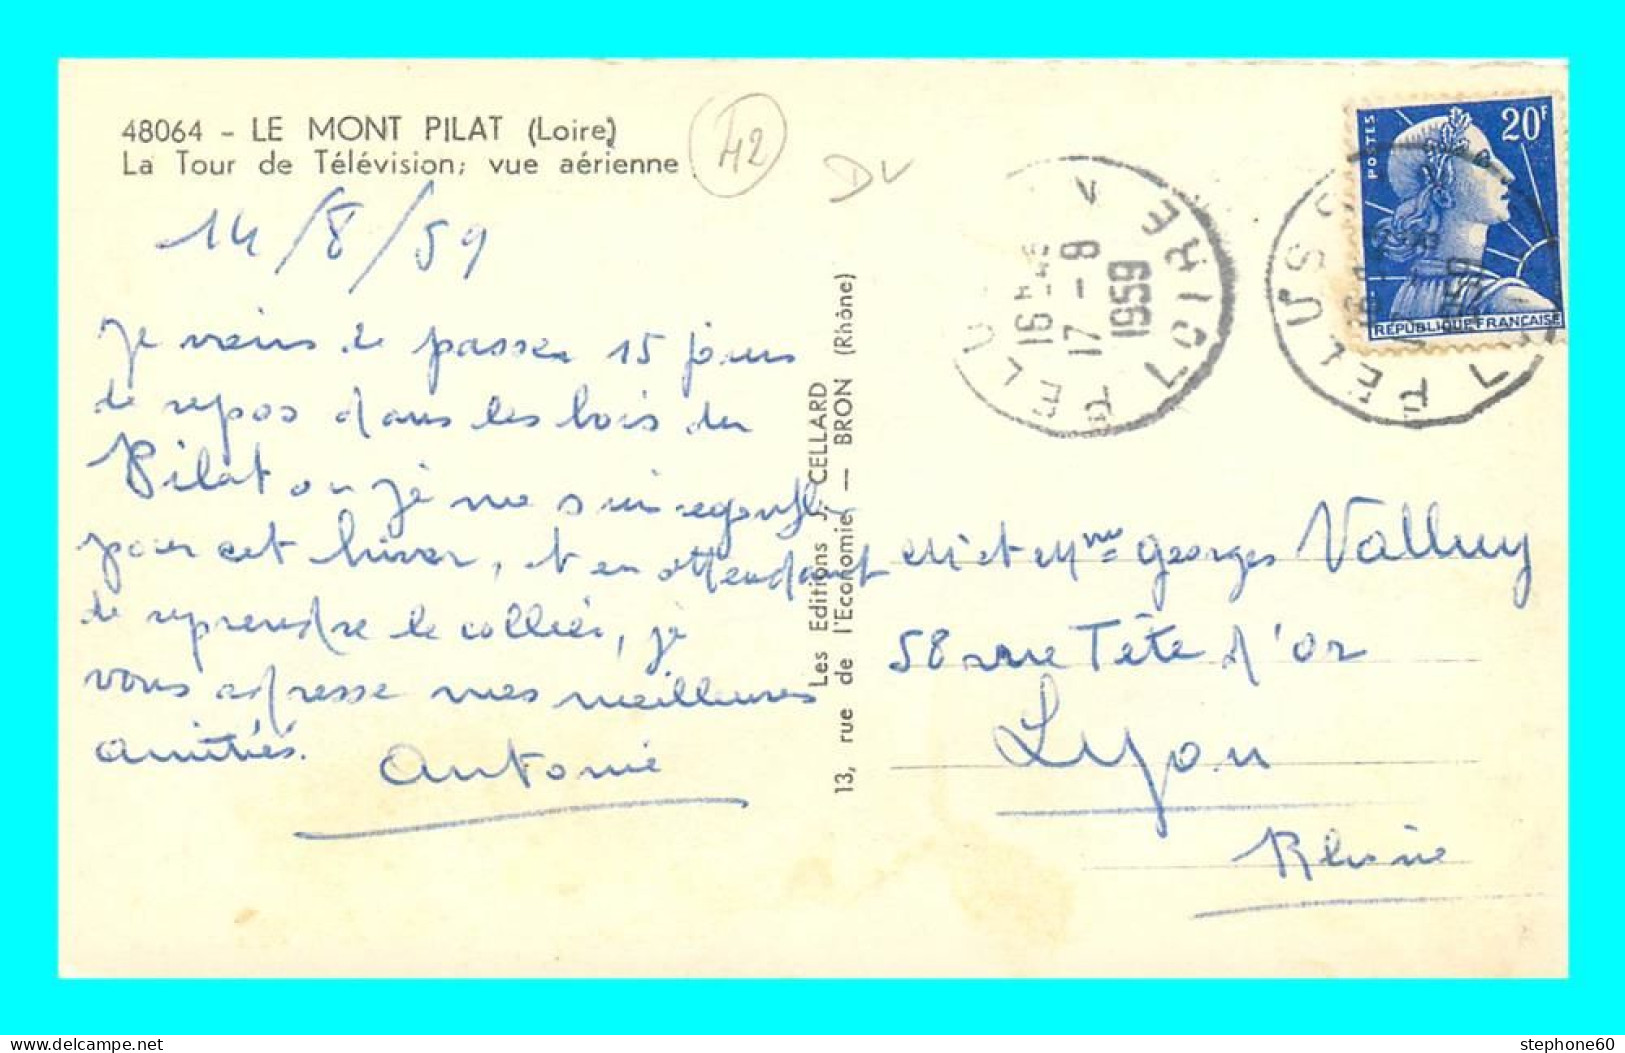 48064 - LE MONT PILAT (Loire)
La Tour de Télévision; vue aérienne
42
DV
14/8/59
Je viens de passer 15 jours
de repos dans les bois du
Pilat ou je me suis regonflé
pour cet hiver, et en attendant
de reprendre le collier, je
vous adresse mes meilleures
amitiés.
Antonie
Les Editions J. CELLARD
13, rue de l'Economie — BRON (Rhône)
PELUS
LOIRE
16 H 45
17 - 8
1959
PELUSS
POSTES
20F
REPUBLIQUE FRANCAISE
M. et Mme Georges Valluy
58 rue Tête d'or
Lyon
Rhône
stephone60